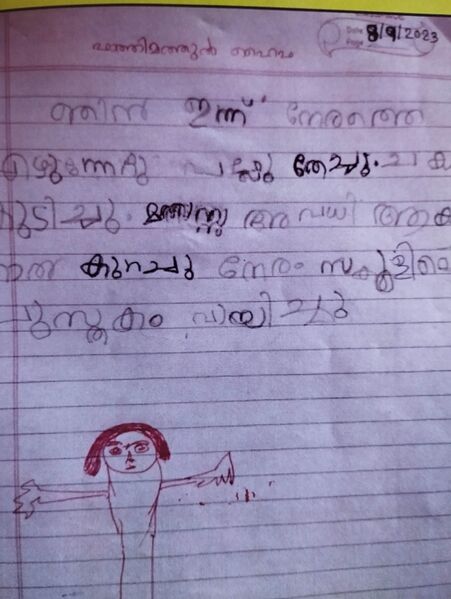 Date 8/9/2023
Page
ഫാത്തിമത്തുൽ
ഞാൻ ഇന്ന് നേരത്തെ
എഴുന്നേറ്റു പല്ലു തേച്ചു. ചായ
കുടിച്ചു. അവധി ആയ
കുറച്ചു നേരം സ്കൂളിലെ
പുസ്തകം വായിച്ചു